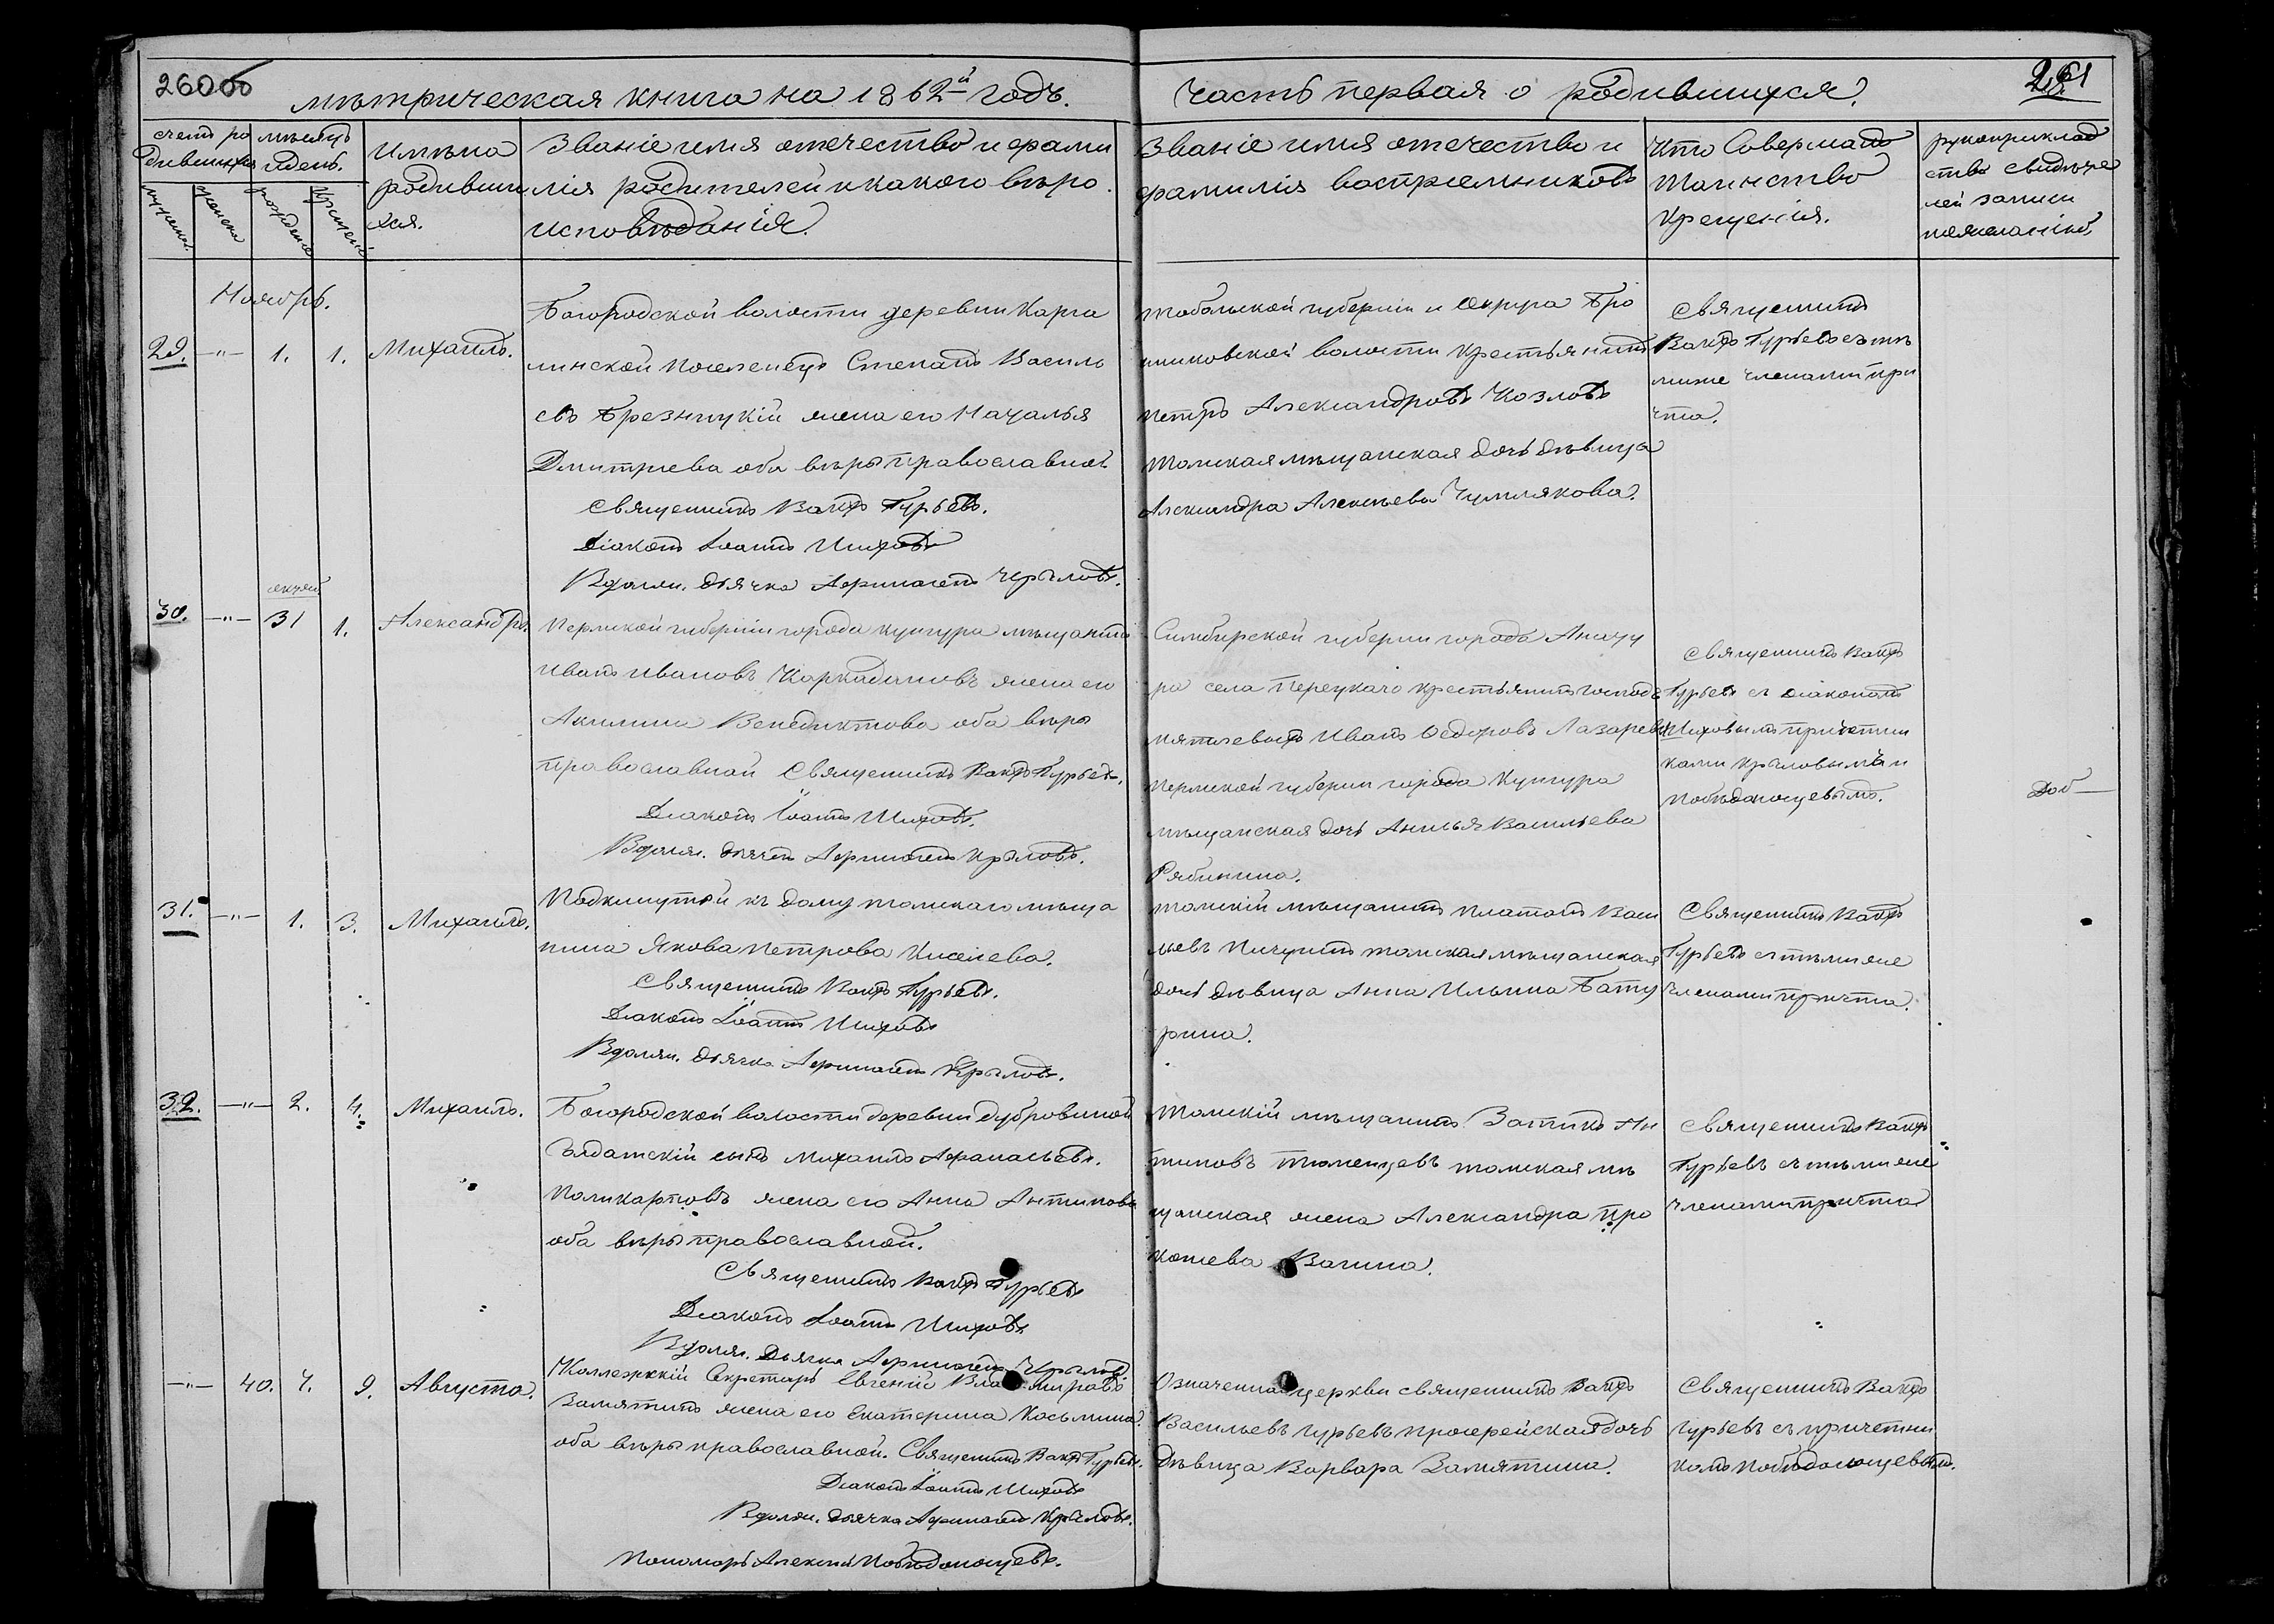 260об
Мѣтрическая книга на 1862й годъ.
Часть первая о родившихся.
261
счетъ ро
дившихся
мѣсяцъ
и день.
мужеска
женска
рожденія
крещенія
Имѣна
родивши
хся.
Званіе имя отечество и фами
лія родителей и какого вѣро
исповѣданія.
Званіе имя отечество и
фамилія воспріемниковъ
Кто Совершалъ
Таинство
Крещенія.
рукоприклад
ство свидѣте
лей записи
по желанію
Ноябрь.
29. —"— 1. 1. Михаилъ.
Богородской волости деревни Карга
линской Поселенецъ Степанъ Василь
евъ Брезницкій жена его Наталья
Дмитріева оба вѣры православной
Священникъ Вакхъ Гурьевъ.
Діаконъ Іоаннъ Шиховъ
В долж. дьячка Афиногенъ Крыловъ.
Тобольской губерніи и Округа Бро
нниковской волости Крестьянинъ
Петръ Александровъ Козловъ
Томская мѣщанская дочь дѣвица
Александра Алексѣева Чумлякова.
Священникъ
Вакхъ Гурьевъ съ тѣ
миже членами при
чта.
30. —"— 31 1. Александръ.
Пермской губерніи города Кунгура мѣщанинъ
Иванъ Ивановъ жена его
Акилина Венедиктова оба вѣры
православной Священникъ Вакхъ Гурьевъ.
Діаконъ Іоаннъ Шиховъ.
В долж. дьячка Афиногенъ Крыловъ.
Симбирской губерніи городъ
села крестьянинъ господъ
Иванъ Ѳедоровъ Лазаревъ
Пермской губерніи города Кунгура
мѣщанская дочь Анисья Васильева
Рябинина.
Священникъ Вакхъ
Гурьевъ съ Діакономъ
Шиховымъ причетни
ками Крыловымъ и
Побѣдоносцевымъ.
31. —"— 1. 3. Михаилъ.
Подкинутый къ дому томскаго мѣща
нина Якова Петрова Киселева.
Священникъ Вакхъ Гурьевъ.
Діаконъ Іоаннъ Шиховъ
В долж. дьячка Афиногенъ Крыловъ.
Томскій мѣщанинъ Платонъ Васи
льевъ Пичугинъ томская мѣщанская
дочь дѣвица Анна Ильина Бату
рина.
Священникъ Вакхъ
Гурьевъ съ тѣми же
членами причта.
32. —"— 2. 4. Михаилъ.
Богородской волости деревни Дубровиной
Солдатскій сынъ Михаилъ Афанасьевъ
Поликарповъ жена его Анна Антипова
оба вѣры православной.
Священникъ Вакхъ Гурьевъ
Діаконъ Іоаннъ Шиховъ
В долж. Дьячка Афиногенъ Крыловъ.
Томскій мѣщанинъ Ан
типовъ Тюменцевъ томская мѣ
щанская жена Александра Про
копьева Вагина.
Священникъ Вакхъ
Гурьевъ съ тѣми же
членами причта
—"— 40. 7. 9. Августа.
Коллежскій Секретарь Евгеній Владиміровъ
Замятинъ жена его Екатерина Косьмина.
оба вѣры православной. Священникъ Вакхъ Гурьевъ.
Діаконъ Іоаннъ Шиховъ
В долж. дьячка Афиногенъ Крыловъ.
Пономарь Алексѣй Побѣдоносцевъ.
Означенной церкви священникъ Вакхъ
Васильевъ Гурьевъ протоерейская дочь
дѣвица Варвара Замятина.
Священникъ Вакхъ
Гурьевъ съ причетни
комъ Побѣдоносцевымъ.